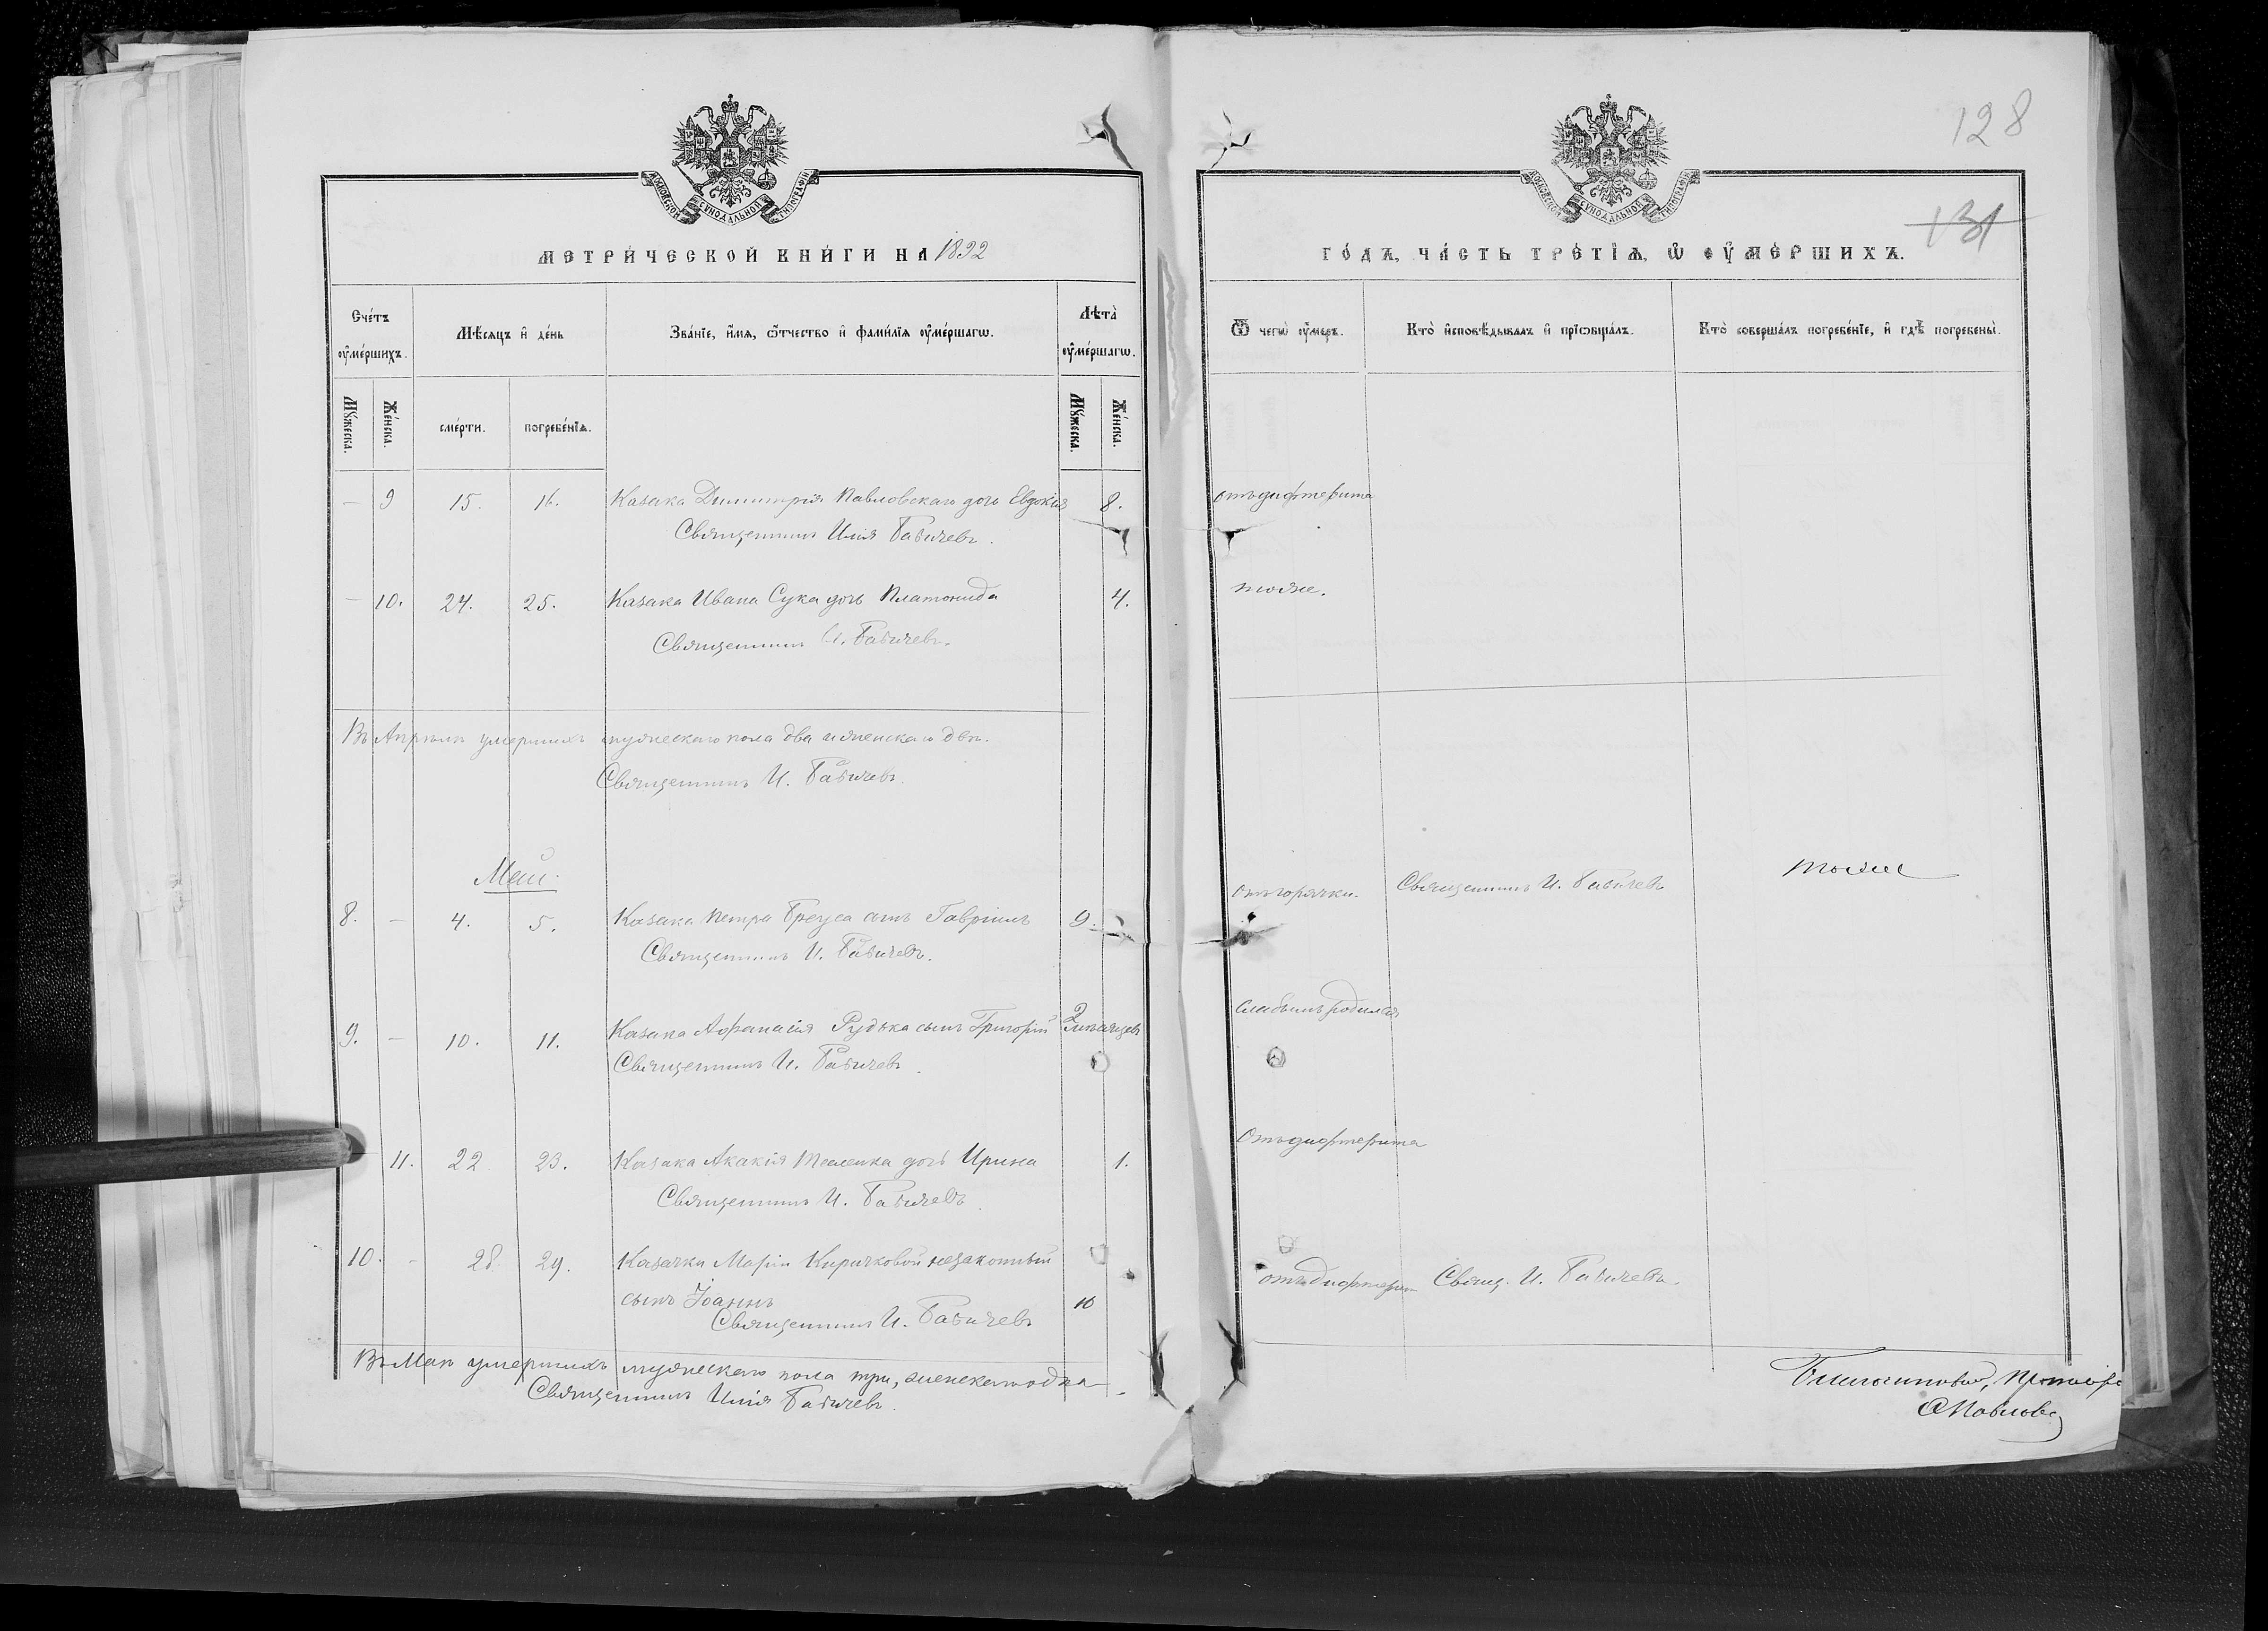 128
131
МОСКОВСКОЙ СУНОДАЛЬНОЙ ТИПОГРАФІИ
МОСКОВСКОЙ СУНОДАЛЬНОЙ ТИПОГРАФІИ
МЕТРИЧЕСКОЙ КНИГИ НА 1892
ГОДЪ, ЧАСТЬ ТРЕТІѦ, Ѿ ОУМЕРШИХЪ.
Счетъ оумершихъ.
Мѣсяцъ и день
Званіе, имя, ѿтчество и фамилія оумершагѡ.
Лѣта оумершагѡ.
Ѿ чегѡ оумеръ.
Кто исповѣдывалъ и пріѡбщалъ.
Кто совершалъ погребеніе, и гдѣ погребены.
Мꙋжеска.
Женска.
смерти.
погребенїѧ.
Мꙋжеска.
Женска.
— 9 15. 16. Казака Димитрія Павловскаго дочь Евдокія 8. отъ дифтерита
Священникъ Илія Бабичевъ.
— 10. 24. 25. Казака Ивана Сука дочь Платонида 4. тоже.
Священникъ И. Бабичевъ.
Въ Апрѣлѣ умершихъ мужескаго пола два и женскаго двѣ.
Священникъ И. Бабичевъ.
Май.
8. — 4. 5. Казака Петра сынъ Гавріилъ 9. отъ горячки. Священникъ И. Бабичевъ тоже
Священникъ И. Бабичевъ.
9. — 10. 11. Казака Афанасія Рудька сынъ Григорій 2 мѣсяцев слабымъ родился
Священникъ И. Бабичевъ.
— 11. 22 23. Казака Акакія Теленка дочь Ирина 1. Отъ дифтерита
Священникъ И. Бабичевъ.
10. - 28. 29. Казачки Маріи Киричковой незаконный
сынъ Іоаннъ 10 отъ дифтерит Свящ. И. Бабичевъ.
Священникъ И. Бабичевъ
Въ Маѣ умершихъ мужескаго пола три, женскаго одна
Священникъ Илія Бабичевъ.
Благочинный, Протоіер
Павловъ